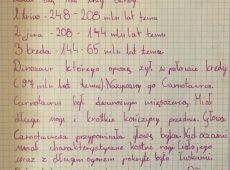 1 trias - 248 - 208 mln lat temu
2 jura - 208 - 144 mln lat temu
3 kreda - 144 - 65 mln lat temu
Dinozaur którego opiszę żył w połowie kredy
(97 mln lat temu) Nazywany go Carnotaurus.
Carnotaurus był dwunożnym mięsożercą. Miał
długie nogi i krótkie kończyny przednie. Głowa
Carnotaurusa przypominała głowę byka. Nad oczami
miał charakterystyczne kostne rogi. Ciało jego
wraz z długim ogonem pokryte było łuskami.